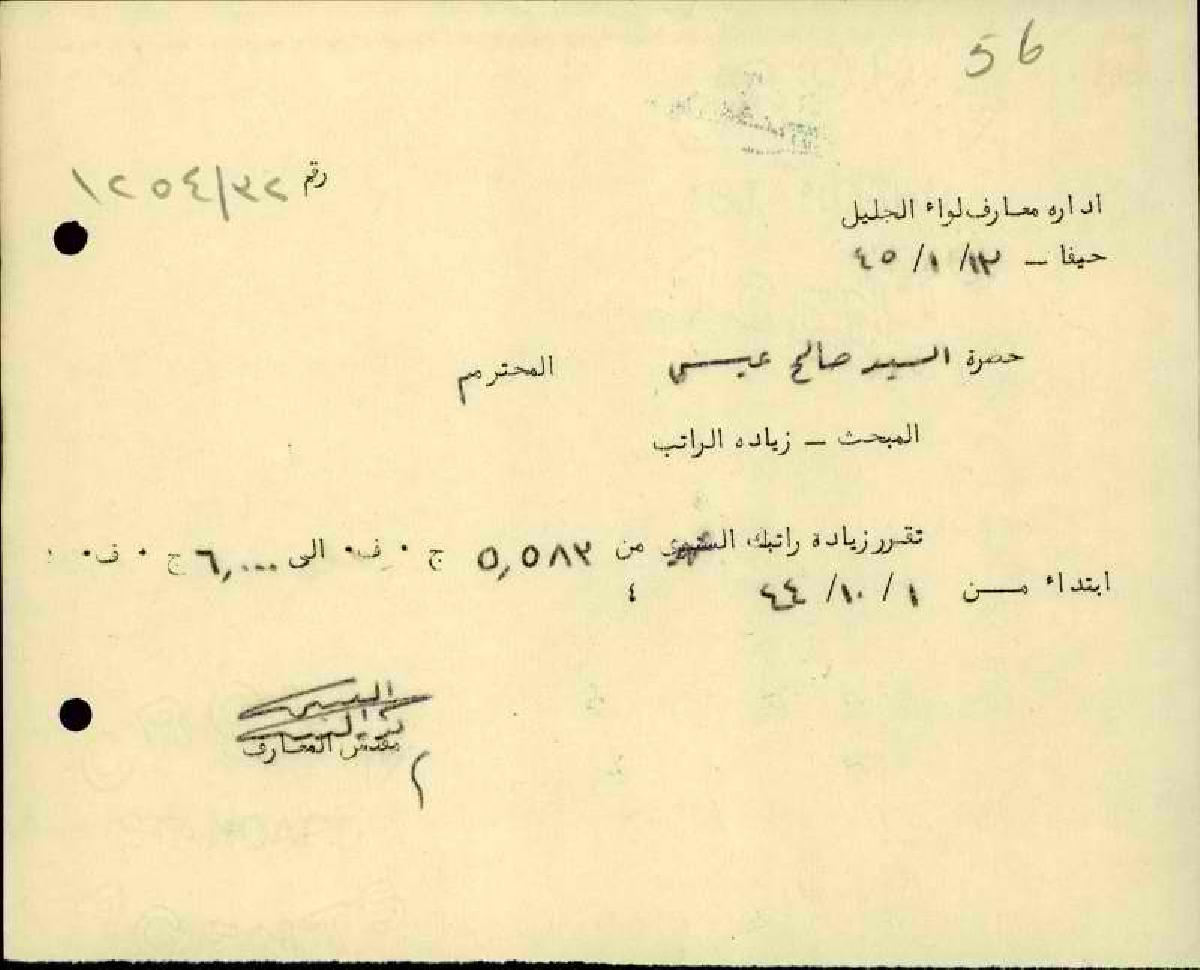 56
رقم ١٢٥٤/٣٢
اداره معارف لواء الجليل
حيفا — ١٣/ ١/ ٤٥
حضرة السيد صالح عيسى المحترم
المبحث — زياده الراتب
تقرر زيادة راتبك الشهري من ٥,٥٨٣ ج ٠ ف٠ الى ٦,٠٠٠ ج ٠ ف٠
ابتداء من ١ /١٠/ ٤٤
٤
مفتش المعارف